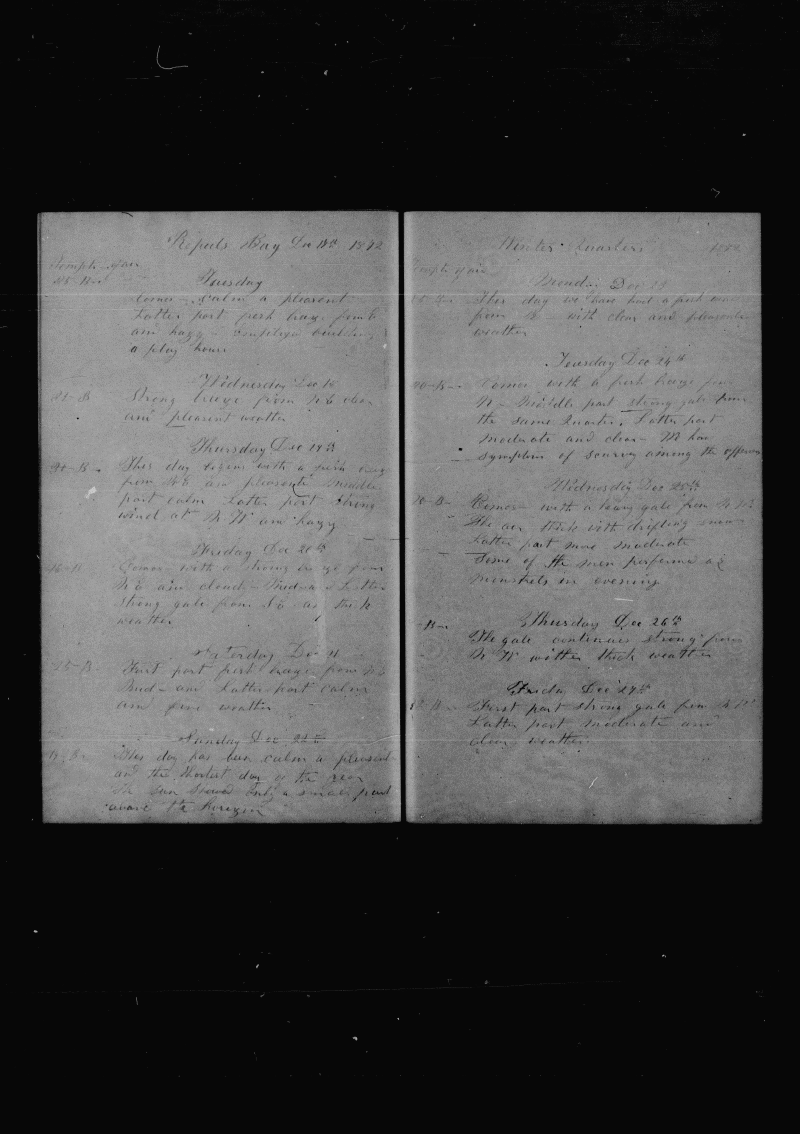 Repuls Bay Dec 17th 1872
Tempt of air
Tuesday
Comes calm a pleasent
Latter part fresh
and hazy
a play house
Wednesday Dec 18
Strong breze from N E clear
and pleasent weather
Thursday Dec 19th
This day begins with a fresh breze
from N E and pleasent Middle
part calm Latter part strong
wind at N W and hazy
Friday Dec 20th
Comes with a strong breze from
N E and cloudy Mid and Latter
strong gale from N E and thick
weather
Saturday Dec 21
First part fresh breze from N E
Mid and Latter part calm
and fine weather
Sunday Dec 22th
This day has been calm a pleasent
and the Shortest day of the year
The sun showed only a small part
above the horizon
Winter Quarters 1872
Tempt of air
Monday Dec 23
This day we have had a fresh
from N with clear and pleasent
weather
Tuesday Dec 24th
Comes with a fresh breze from
N Middle part strong gale from
the same Quarter. Latter part
moderate and clear
symptms of scurvy among the
Wednesday Dec 25th
Comes with a heavy gale from N W
The air thick with drifting snow
Latter part more moderate
Some of the men performed as
minstrels in evening
Thursday Dec 26th
The gale continues strong from
N W with thick weather
Friday Dec 27th
First part strong gale from N W
Latter part moderate and
clear weather